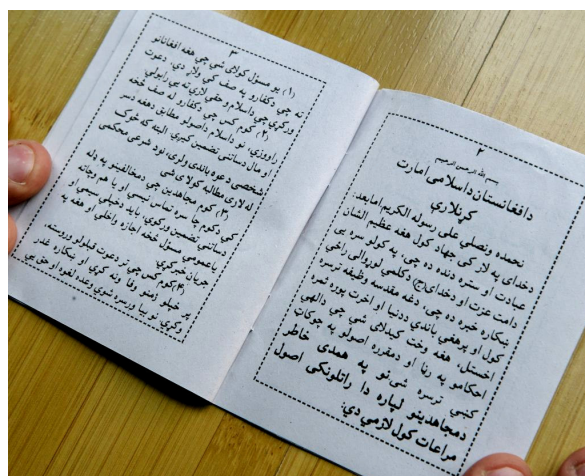 ۲
بسم الله الرحمن الرحیم
دافغانستان داسلامی امارت
کړنلاري
نحمده ونصلي علی رسوله الکریم امابعد:
دخدای په لار کي جهاد کول هغه عظیم الشان
عبادت او ستره دنده ده چي، په کولو سره یي
دامت عزت او دخدای(ج) دکلمې لوړوالی راځي
ښکاره خبره ده چي، دغه مقدسه وظیفه ترسره
کول او پرهغې باندي ددنیا او اخرت پوره ثمره
اخستل، هغه وخت کیدلای شي چي دالهي
احکامو په رڼا او دمقرره اصولو په چوکاټ
کښي ترسره شي نو په همدې خاطر
دمجاهدینو لپاره دا راتلونکي اصول
مراعات کول لازمي دي:
۳
(۱) یو مسئول کولای شي چي هغه افغانانو
ته چي دکفارو په صف کي ولاړ دي، دعوت
ورکړي چي داسلام و حقي لاري ته یي راوبولي
(۲) کوم کس چي دکفارو له صف څخه
راووزي، نو داسلام داصولو مطابق دهغه دسر
او مال دساتني تضمین کیږي البته که څوک
شخصي دعوه باندي ولري، نود شرعي محکمې
له لاري مطالبه کولای شي
(۳) کوم مجاهدین چي دمخالفینو په دله
کي دکوم چا سره تماس نیسي او یا هم وهغه ته
دساتني تضمین ورکوي، باید دخپل
یاعمومي مسئول څخه اجازه واخلي او هغه په
جریان خبر کړي
(۴) کوم کس چي تر دعوت قبلولو وروسته،
پر خپلو ژمنو وفا ونه کړي او ښکاره غدر
وکړي نو بیا ورسره شوي وعده لغوه او حق یي